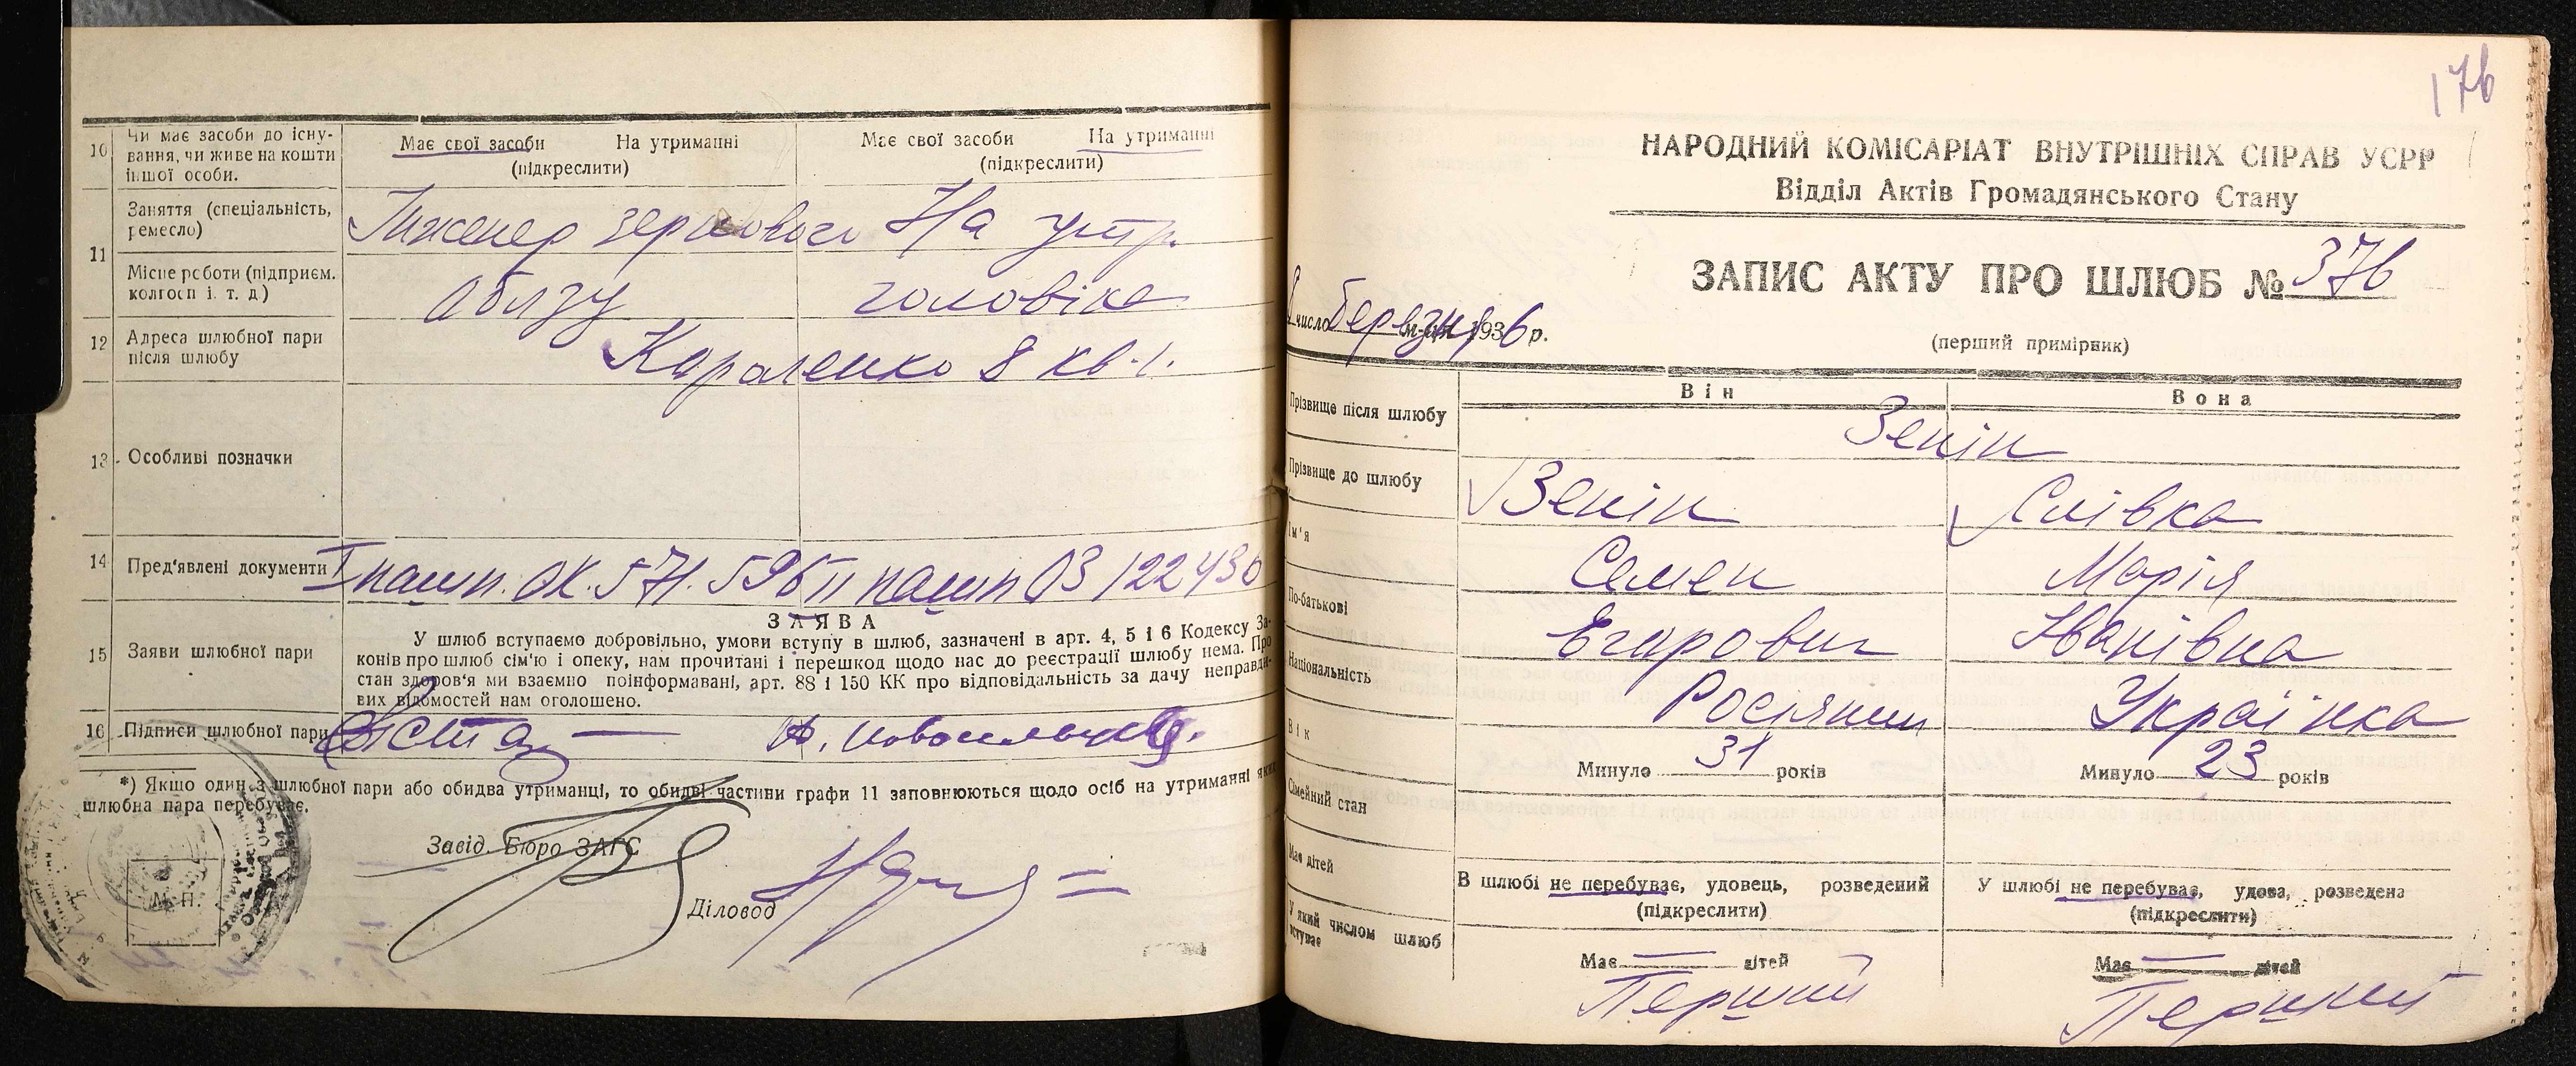 10 Чи має засоби до існу-
вання, чи живе на кошти
іншої особи.
Має свої засоби На утриманні
(підкреслити)
Має свої засоби На утриманні
(підкреслити)
11 Заняття (спеціальність,
ремесло)
Інженер зернового На утр.
Місце роботи (підприєм.
колгосп і. т. д)
облзу чоловіка
12 Адреса шлюбної пари
після шлюбу
Короленко 8 кв. 1.
13 Особливі позначки
14 Пред'явлені документи
I пашп. ОК. 571. 596 II пашп ОЗ 122430
15 Заяви шлюбної пари
ЗАЯВА
У шлюб вступаємо добровільно, умови вступу в шлюб, зазначені в арт. 4, 5 і 6 Кодексу За-
конів про шлюб сім'ю і опеку, нам прочитані і перешкод щодо нас до реєстрації шлюбу нема. Про
стан здоров'я ми взаємно поінформавані, арт. 88 і 150 КК про відповідальність за дачу неправди-
вих відомостей нам оголошено.
16 Підписи шлюбної пари
*) Якщо один з шлюбної пари або обидва утриманці, то обидві частини графи 11 заповнюються щодо осіб на утриманні яких
шлюбна пара перебуває.
Завід. Бюро ЗАГС
Діловод
М. П.
176
НАРОДНИЙ КОМІСАРІАТ ВНУТРІШНІХ СПРАВ УСРР
Відділ Актів Громадянського Стану
ЗАПИС АКТУ ПРО ШЛЮБ № 376
число березня м-ця 1936 р.
(перший примірник)
Він Вона
Прізвище після шлюбу
Зенін
Прізвище до шлюбу
Зенін Слівка
Ім'я
Семен Марія
По-батькові
Егорович Іванівна
Національність
Росіянин Українка
Вік
Минуло 31 років Минуло 23 років
Сімейний стан
В шлюбі не перебуває, удовець, розведений
(підкреслити)
У шлюбі не перебуває, удова, розведена
(підкреслити)
Має дітей
Має — дітей Має — дітей
У який числом шлюб
вступає
Перший Перший